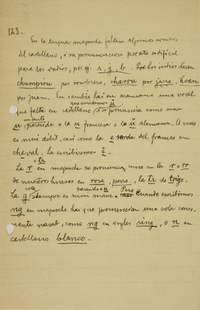 123.
En la lengua mapuche faltan algunos sonidos
del castellano, i su pronunciacion por esto es difícil
para los indios, por ej. s, j, b, los indios dicen
chumpiru por sombrero, por jarro, Koan
por Juan. En cambio hai en mapuche una vocal
que falta en castellano, i se pronuncia como una
u parecida a la u francesa o la ü alemana. A veces
es mui débil, casi como la e muda del frances en
cheval. La escribimos ë.
i tr
La r en mapuche se pronuncia como en la r o rr
de nuestros huasos en rosa, perro, la tr de trigo.
La g siempre es mui suave. Cuando escribimos
ng en mapuche hai que pronunciar una sola conso-
nante nasal, como ng en ingles ring, o n en
castellano blanco.